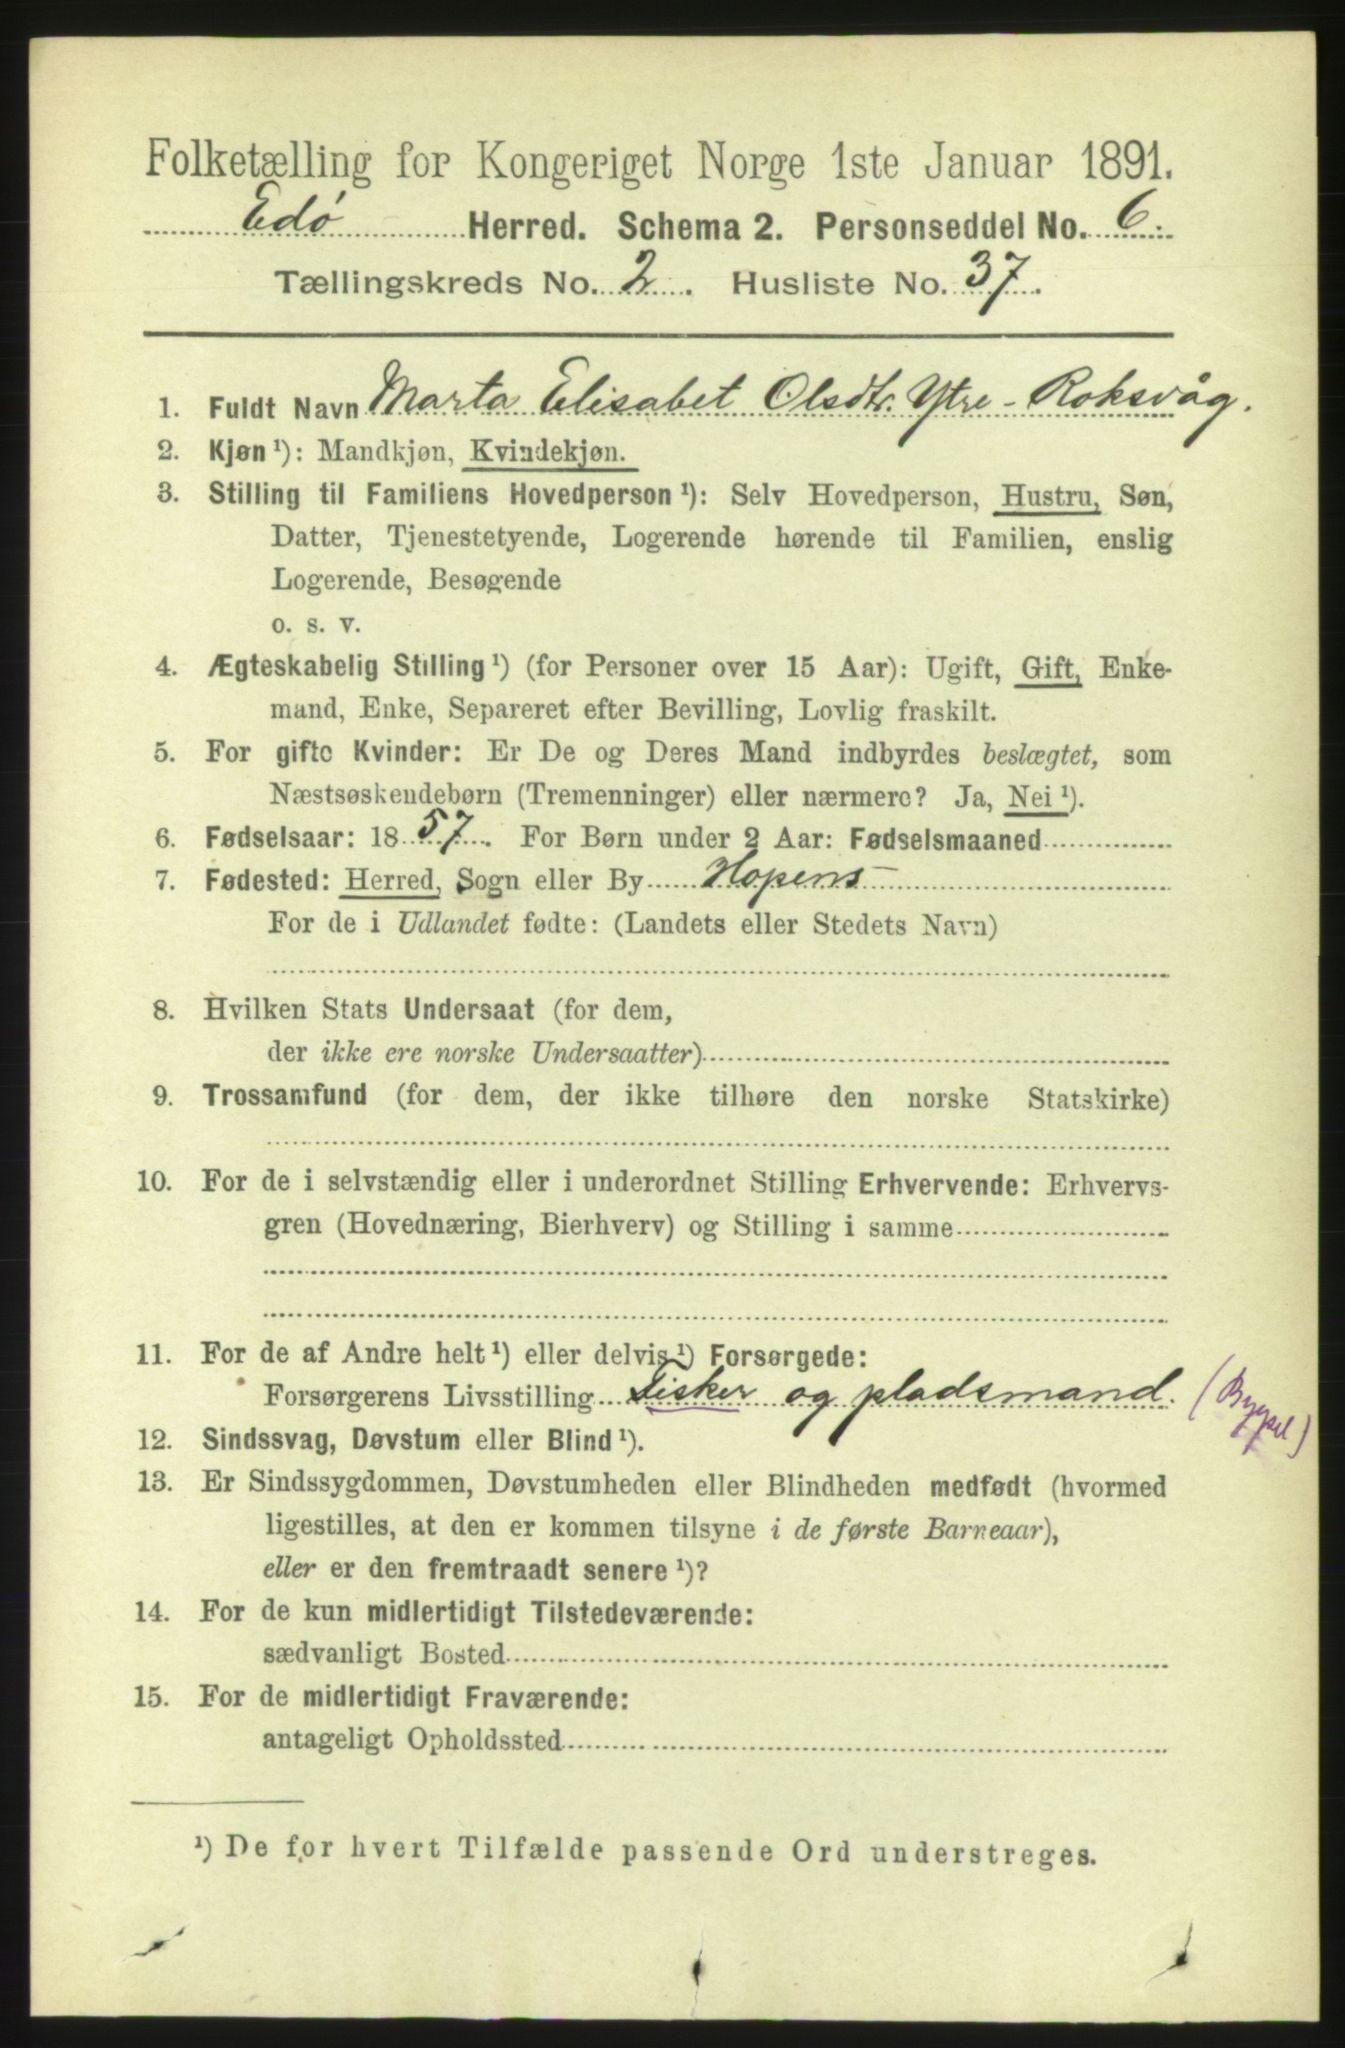 Folketælling for Kongeriget Norge 1ste Januar 1891.
Edø Herred. Schema 2. Personseddel No. 6.
Tællingskreds No. 2. Husliste No. 37.
1. Fuldt Navn Marta Elisabet Olsdtr. Ytre-Roksvåg.
2. Kjøn ¹): Mandkjøn, Kvindekjøn.
3. Stilling til Familiens Hovedperson ¹): Selv Hovedperson, Hustru, Søn,
Datter, Tjenestetyende, Logerende hørende til Familien, enslig
Logerende, Besøgende
o. s. v.
4. Ægteskabelig Stilling ¹) (for Personer over 15 Aar): Ugift, Gift, Enke-
mand, Enke, Separeret efter Bevilling, Lovlig fraskilt.
5. For gifte Kvinder: Er De og Deres Mand indbyrdes beslægtet, som
Næstsøskendebørn (Tremenninger) eller nærmere? Ja, Nei ¹).
6. Fødselsaar: 1857. For Børn under 2 Aar: Fødselsmaaned
7. Fødested: Herred, Sogn eller By Hopens
For de i Udlandet fødte: (Landets eller Stedets Navn)
8. Hvilken Stats Undersaat (for dem,
der ikke ere norske Undersaatter)
9. Trossamfund (for dem, der ikke tilhøre den norske Statskirke)
10. For de i selvstændig eller i underordnet Stilling Erhvervende: Erhvervs-
gren (Hovednæring, Bierhverv) og Stilling i samme
11. For de af Andre helt ¹) eller delvis ¹) Forsørgede:
Forsørgerens Livsstilling Fisker og pladsmand. (Bygsel)
12. Sindssvag, Døvstum eller Blind ¹).
13. Er Sindssygdommen, Døvstumheden eller Blindheden medfødt (hvormed
ligestilles, at den er kommen tilsyne i de første Barneaar),
eller er den fremtraadt senere ¹)?
14. For de kun midlertidigt Tilstedeværende:
sædvanligt Bosted
15. For de midlertidigt Fraværende:
antageligt Opholdssted
¹) De for hvert Tilfælde passende Ord understreges.